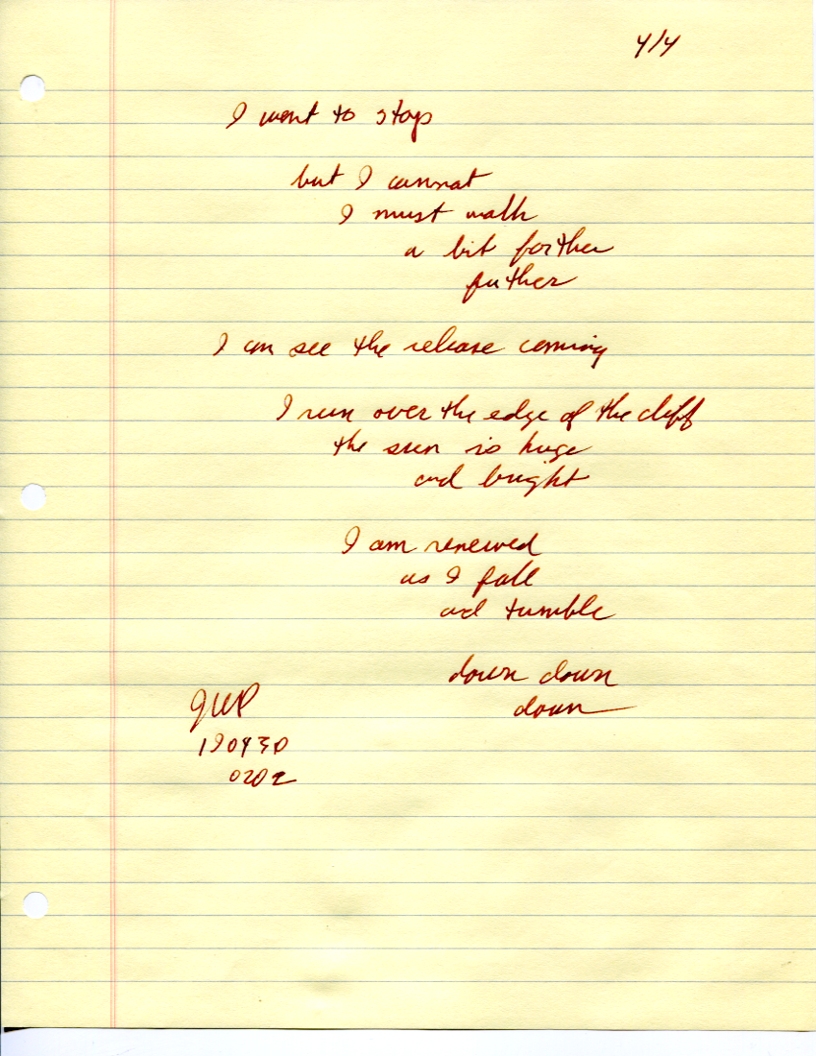 4/4
I want to stop
but I cannot
I must walk
a bit further
further
I can see the release coming
I run over the edge of the cliff
the sun is huge
and bright
I am renewed
as I fall
and tumble
down down
down
JWP
190430
0202